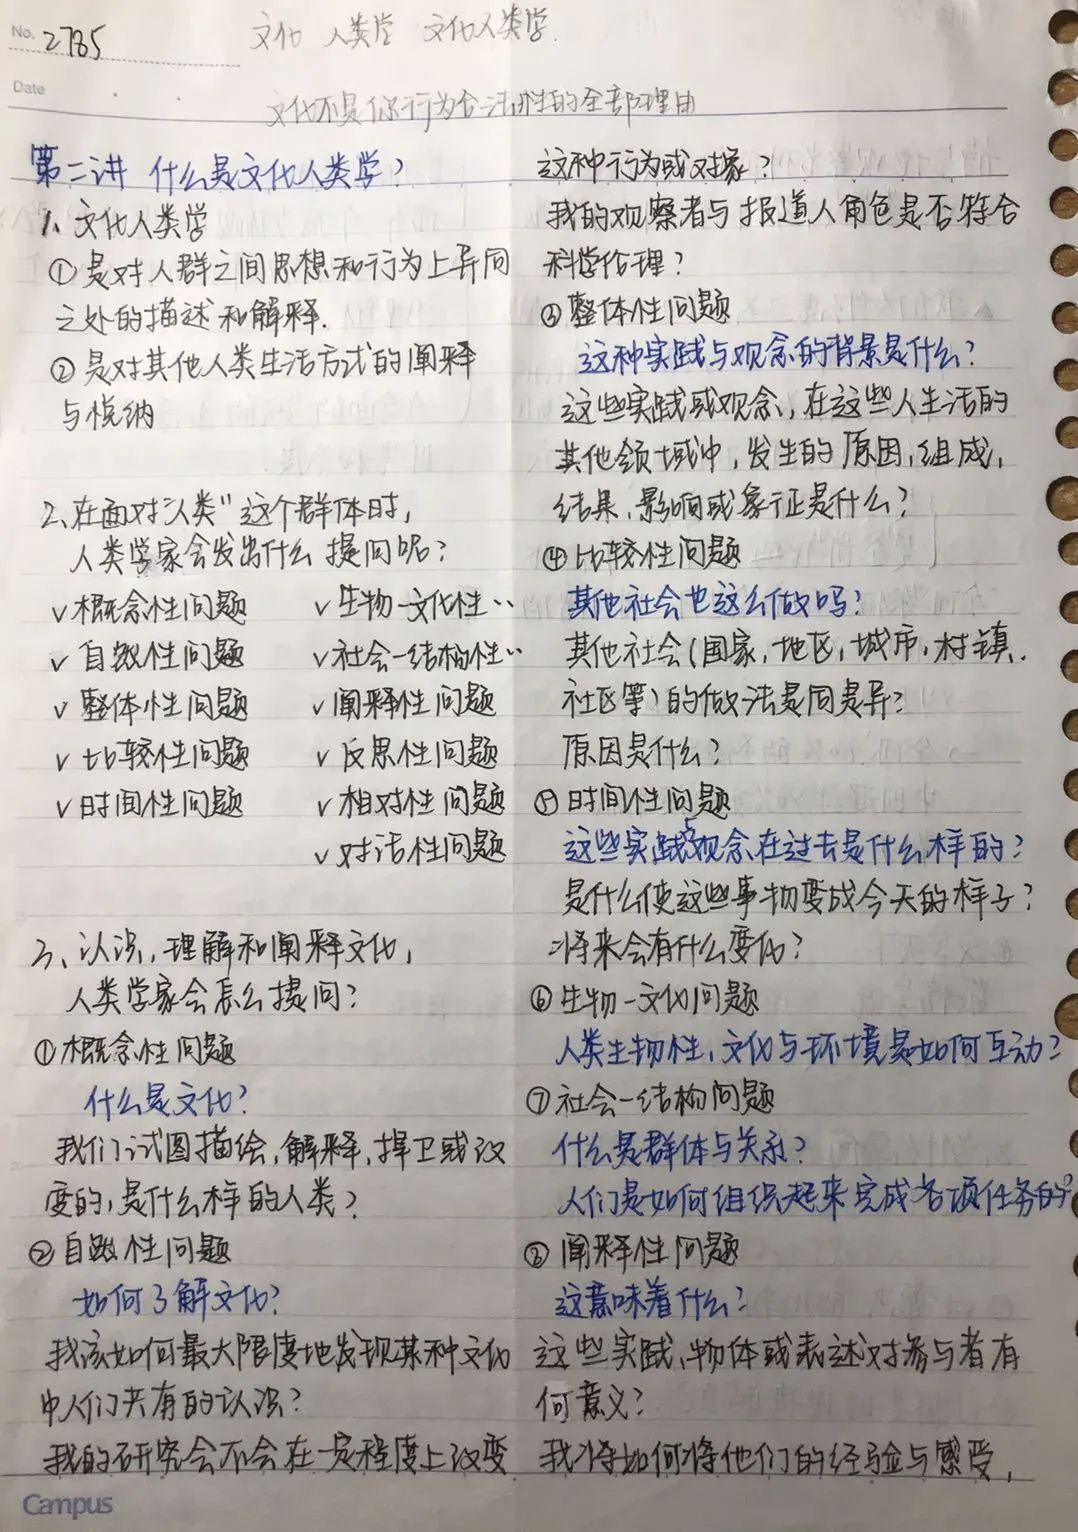 No. 2785
文化 人类学 文化人类学
Date
文化不是你行为合法性的全部理由
第二讲 什么是文化人类学?
1、文化人类学
①是对人群之间思想和行为上异同
之处的描述和解释.
②是对其他人类生活方式的阐释
与悦纳
2、在面对"人类"这个群体时,
人类学家会发出什么提问呢?
✓概念性问题 ✓生物-文化性··
✓自然性问题 ✓社会-结构性··
✓整体性问题 ✓阐释性问题
✓比较性问题 ✓反思性问题
✓时间性问题 ✓相对性问题
✓对话性问题
3、认识,理解和阐释文化,
人类学家会怎么提问?
①概念性问题
什么是文化?
我们试图描绘,解释,捍卫或改
变的,是什么样的人类?
②自然性问题
如何了解文化?
我该如何最大限度地发现某种文化
中人们共有的认识?
我的研究会不会在一定程度上改变
这种行为或对象?
我的观察者与报道人角色是否符合
科学伦理?
③整体性问题
这种实践与观念的背景是什么?
这些实践或观念,在这些人生活的
其他领域中,发生的原因,组成,
结果,影响或象征是什么?
④比较性问题
其他社会也这么做吗?
其他社会(国家,地区,城市,村镇.
社区等)的做法是同是异?
原因是什么?
⑤时间性问题
这些实践、观念在过去是什么样的?
是什么使这些事物变成今天的样子?
将来会有什么变化?
⑥生物-文化问题
人类生物性,文化与环境是如何互动?
⑦社会-结构问题
什么是群体与关系?
人们是如何组织起来完成各项任务的?
⑧阐释性问题
这意味着什么?
这些实践、物体或表述对参与者有
何意义?
我将如何将他们的经验与感受,
Campus